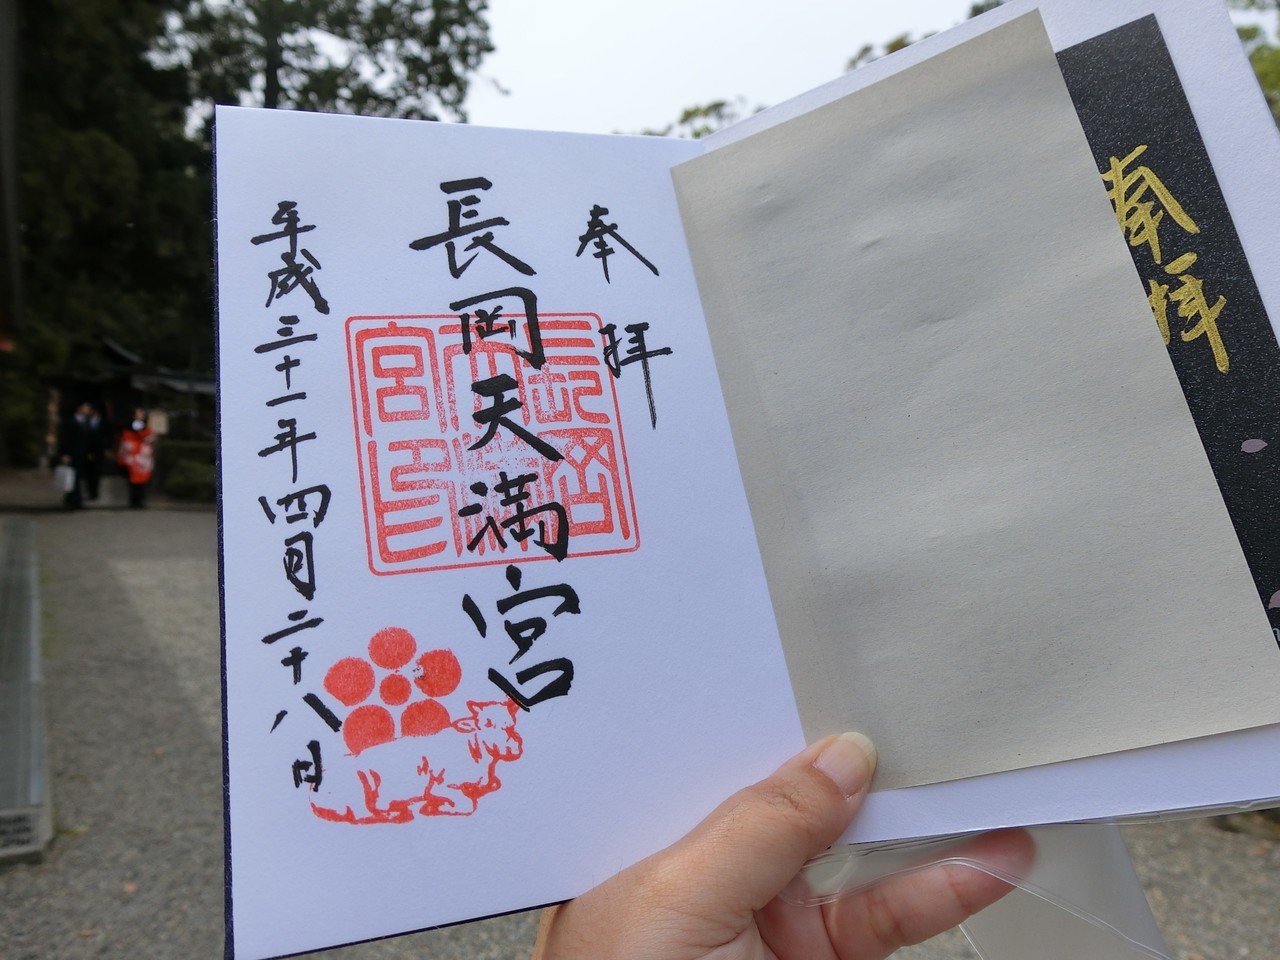 奉拝
奉拝
長岡天満宮
長岡
天満
宮印
平成三十一年四月二十八日